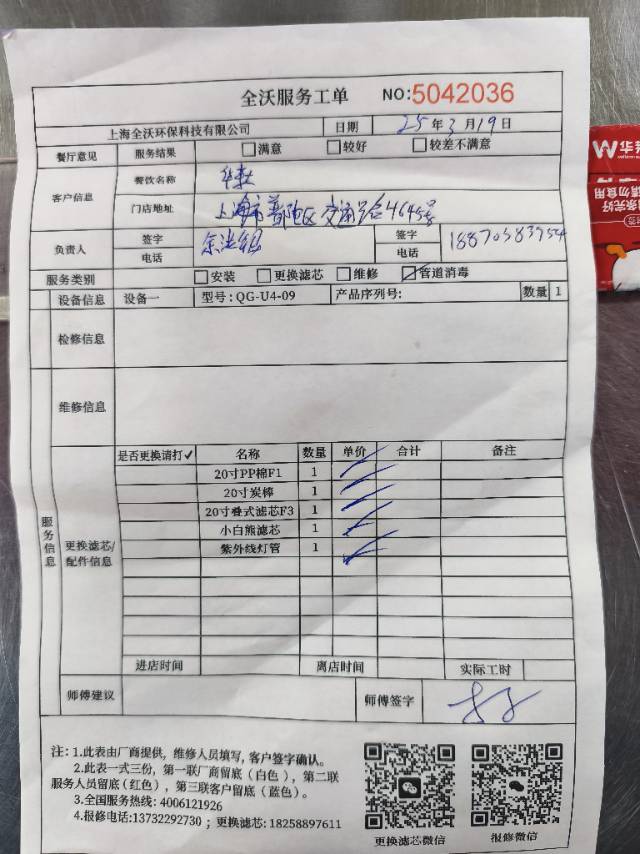 全沃服务工单 NO:5042036
上海全沃环保科技有限公司 日期 25年3月19日
餐厅意见 服务结果 满意 较好 较差不满意
客户信息 餐饮名称 华莱士
门店地址 上海市普陀区交通路4645号
负责人 签字 签字
电话 电话
服务类别 安装 更换滤芯 维修 管道消毒
设备信息 设备一 型号:QG-U4-09 产品序列号: 数量 1
检修信息
维修信息
服务信息 更换滤芯/配件信息
是否更换请打✓ 名称 数量 单价 合计 备注
20寸PP棉F1 1
20寸炭棒 1
20寸叠式滤芯F3 1
小白熊滤芯 1
紫外线灯管 1
进店时间 离店时间 实际工时
师傅建议 师傅签字
注:1.此表由厂商提供，维修人员填写,客户签字确认。
2.此表一式三份，第一联厂商留底(白色)，第二联
服务人员留底(红色)，第三联客户留底(蓝色)。
3.全国服务热线:4006121926
4.报修电话:13732292730;更换滤芯:18258897611
更换滤芯微信 报修微信